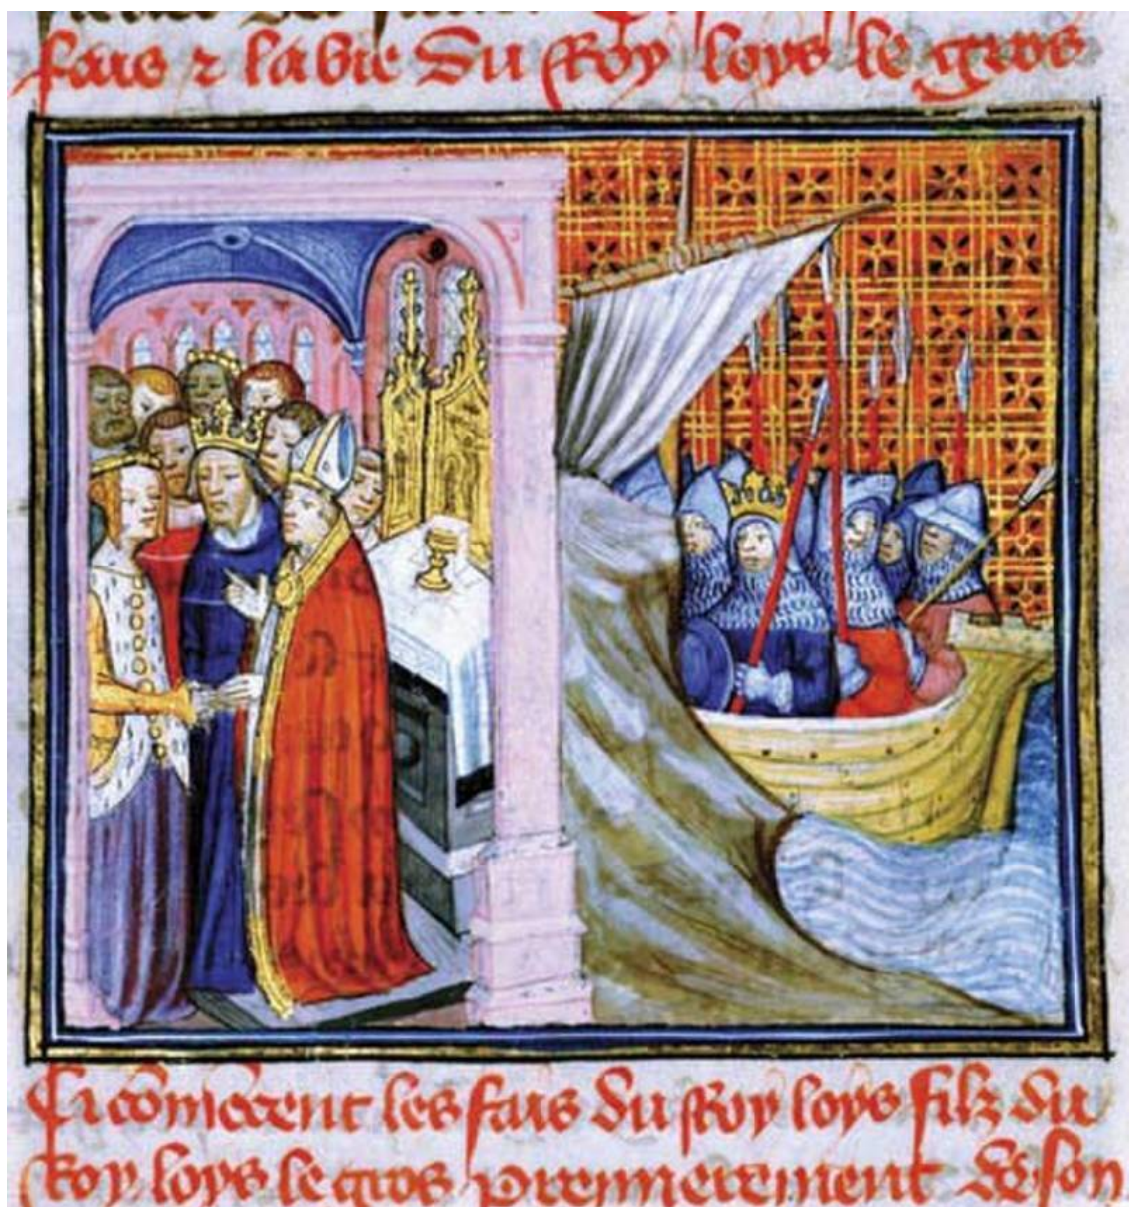 fais ⁊ la vie du Roy loys le gros
Ci cōmencent les fais du Roy loys filz du
Roy loys le gros premierement de son